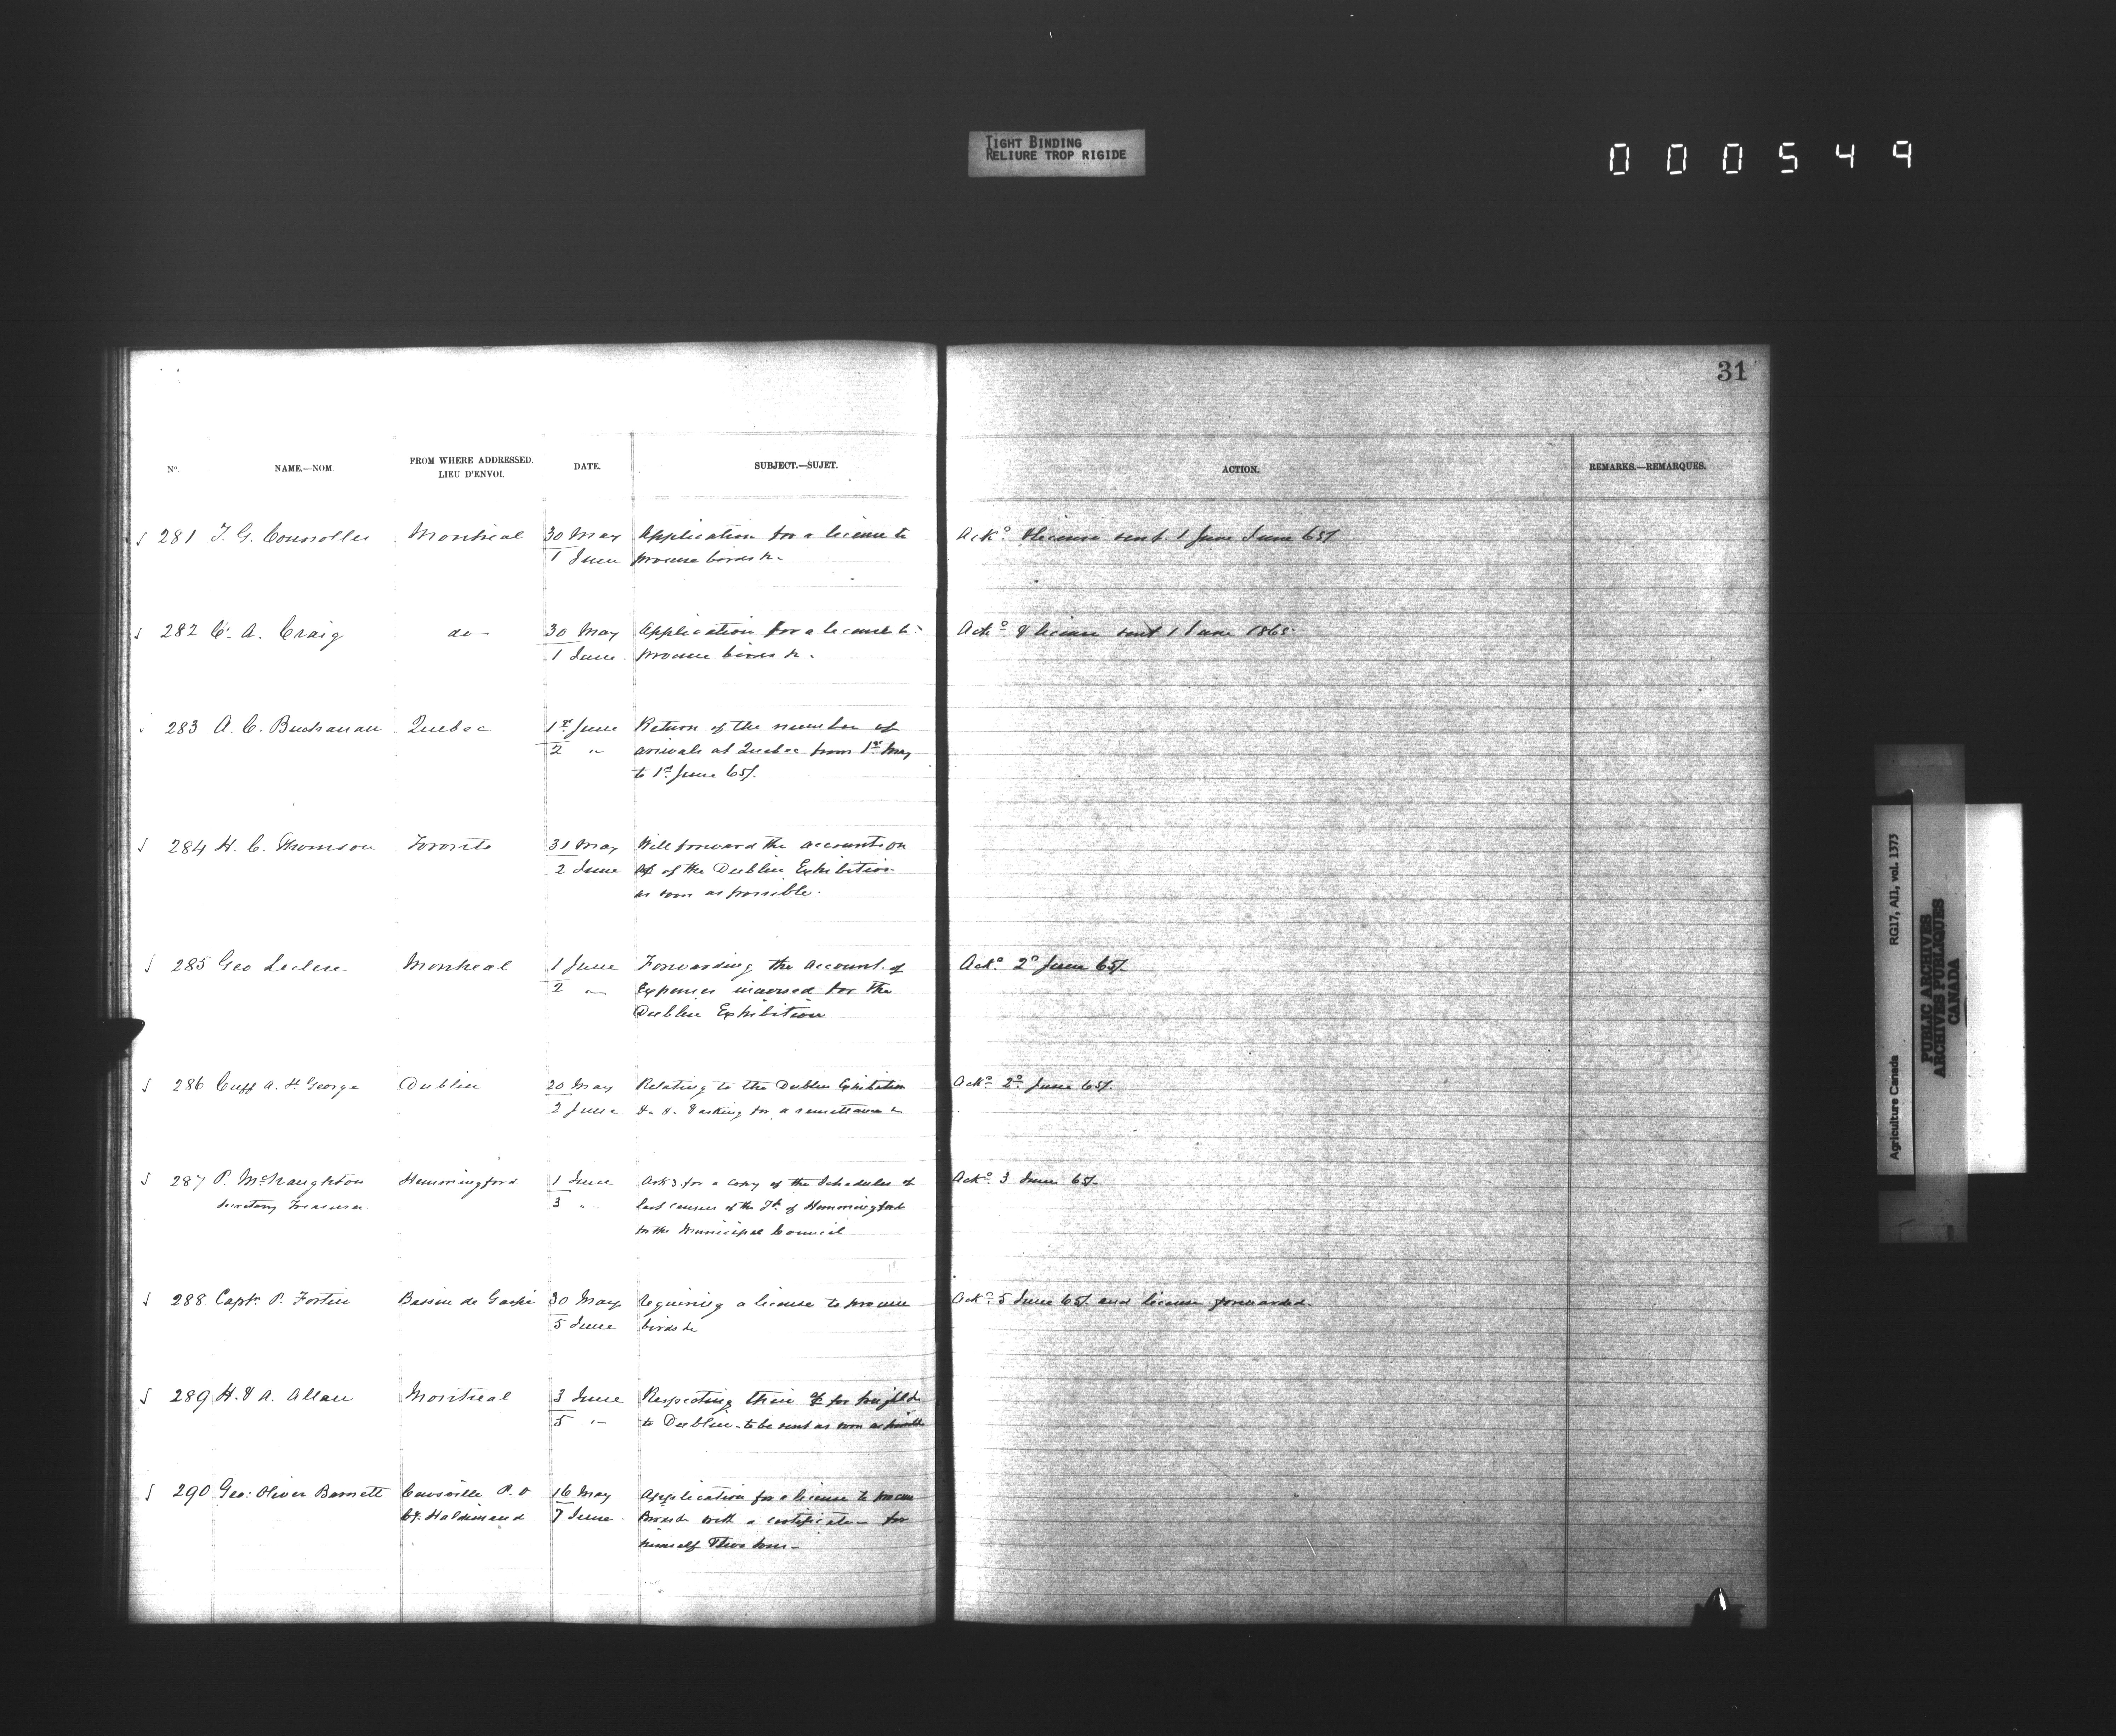 TIGHT BINDING
RELIURE TROP RIGIDE
000549
31
N°. NAME.—NOM. FROM WHERE ADDRESSED. LIEU D'ENVOI. DATE. SUBJECT.—SUJET. ACTION. REMARKS.—REMARQUES.
281 J. G. Montreal 30 May Application for a license to Ack° & license sent 1 June June 65/
1 June procure birds &c
282 C. A. Craig do 30 May Application for a license to Ack° & license sent 1 June 1865
1 June procure birds &c.
283 A. C. Buchanan Quebec 1st June Return of the number of
2 " arrivals at Quebec from 1st May
to 1st June 65/.
284 H. C. Thomson Toronto 31 May Will forward the accounts on
2 June of the Dublin Exhibition
as soon as possible.
285 Geo Leclere Montreal 1 June Forwarding the account of Ack° 2d June 65/
2 " Expenses incurred for the
Dublin Exhibition
286 Cuff A. St George Dublin 20 May Relating to the Dublin Exhibition Ack° 2d June 65/.
2 June &c &c & asking for a remittance
287 P. McNaughton Hemmingford 1 June Asks for a copy of the Schedules of Ack° 3 June 65/
Secretary Treasurer 3 " last census of the Tp. of Hemmingford
for the Municipal Council
288 Captn P. Fortin Bassin de Gaspé 30 May Requiring a license to procure Ack° 5 June 65/. and license forwarded.
5 June birds &c
289 H. & A. Allan Montreal 3 June Respecting their a/c for freight &c
5 " to Dublin - to be sent as soon as possible
290 Geo: Oliver Barnett P. O 16 May Application for a license to procure
Cy. Haldimand 7 June Birds &c with a certificate for
himself & two sons
Agriculture Canada RG17, AII, vol. 1373
PUBLIC ARCHIVES
ARCHIVES PUBLIQUES
CANADA